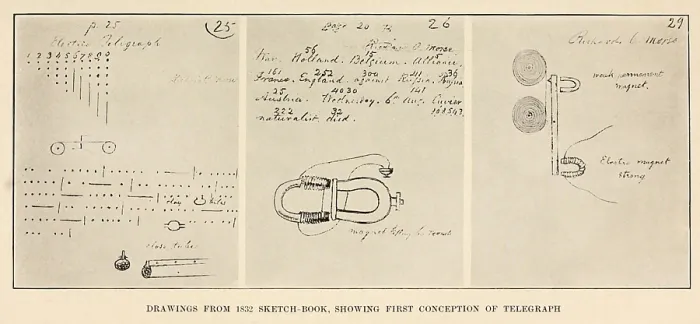 p. 25
25
Electric Telegraph
1 2 3 4 5 6 7 8 9 0
play
glass tube
Page 26
26
Richard C. Morse
56 15 5
War. Holland. Belgium. Alliance,
161 252 300 41 36
France, England against Russia, Prussia
25 4030 141
Austria. Wednesday. 6th Aug. Cuvier
222 32
naturalist died.
magnet
29
Richard C. Morse
weak permanent
magnet.
Electro magnet
strong
DRAWINGS FROM 1832 SKETCH-BOOK, SHOWING FIRST CONCEPTION OF TELEGRAPH